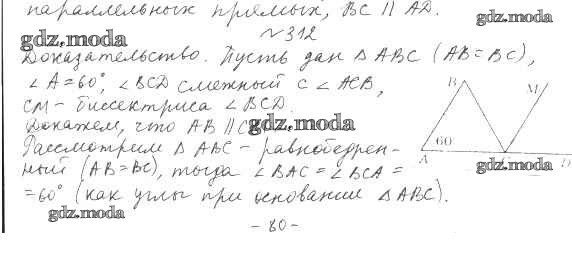 параллельных прямых, BC || AD.
gdz.moda
№312
gdz.moda
Доказательство. Пусть дан △ ABC (AB = BC),
∠ A = 60°, ∠ BCD смежный с ∠ ACB,
CM – биссектриса ∠ BCD.
Докажем, что AB || C
gdz.moda
Рассмотрим △ ABC – равнобедрен-
ный (AB = BC), тогда ∠ BAC = ∠ BCA =
= 60° (как углы при основании △ ABC).
B M
60
A D
gdz.moda
gdz.moda
– 80 –